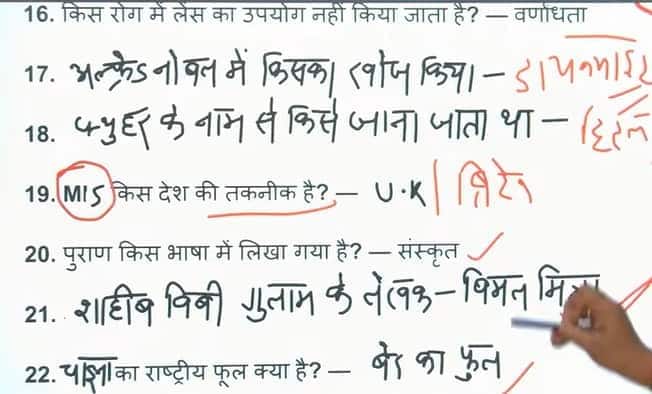 16. किस रोग में लेंस का उपयोग नहीं किया जाता है? — वर्णांधता
17. अल्फ्रेड नोबल में किसका खोज किया – डायनमाइट
18. फ्युहरर के नाम से किसे जाना जाता था – हिटलर
19. MI5 किस देश की तकनीक है? — U.K | ब्रिटेन
20. पुराण किस भाषा में लिखा गया है? — संस्कृत
21. शाहीब बिबी गुलाम के लेखक – बिमल
22. का राष्ट्रीय फूल क्या है? — बेर का फुल